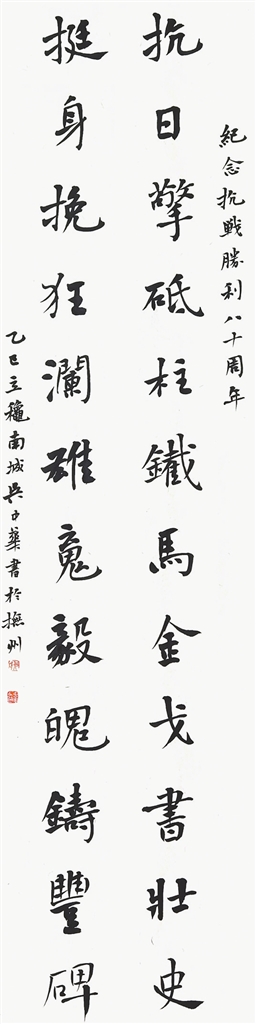 紀念抗戰勝利八十周年
抗日擎砥柱鐵馬金戈書壯史
挺身挽狂瀾雄魂毅魄鑄豐碑
乙巳立穐南城吳子華書於撫州